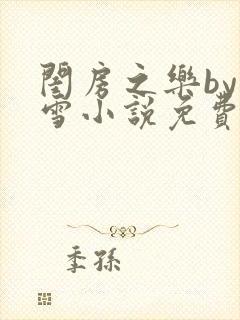 閨房之樂by
雪小說免費
季孫